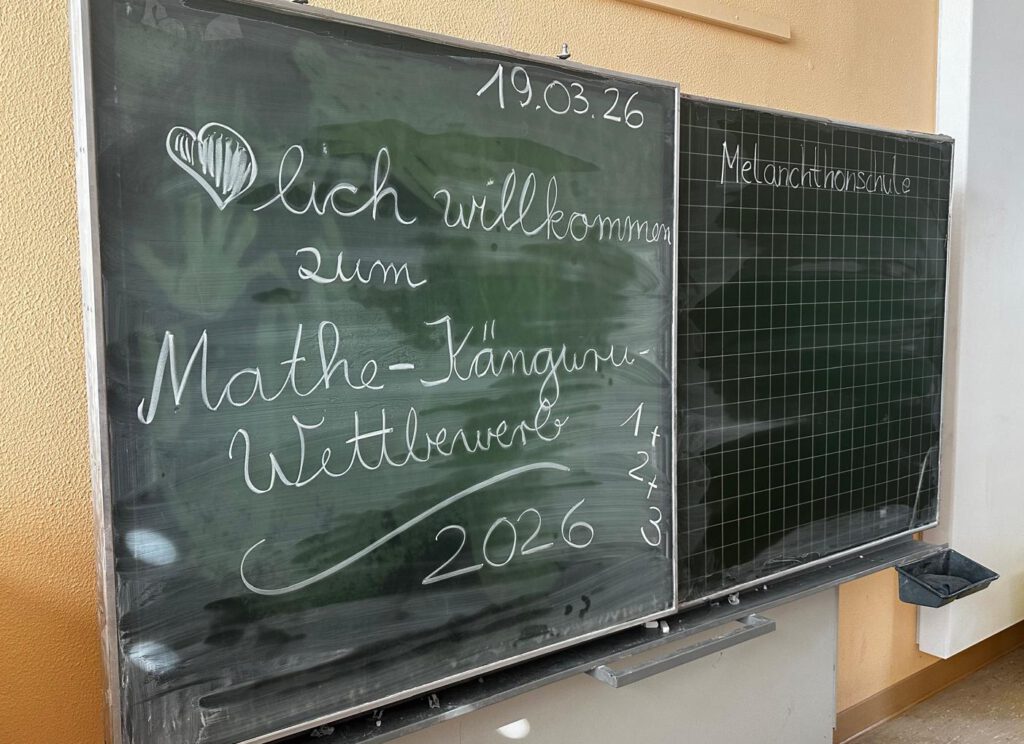 19.03.26
lich willkommen
zum
Mathe-Känguru-
Wettbewerb
2026
1+
2+
3
Melanchthonschule